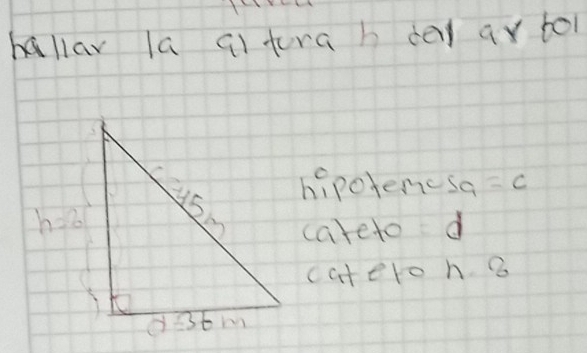 hallar la altura h del arbol
c=45m
hipotemusa = c
h=?
cateto d
cateto h ?
d=36m